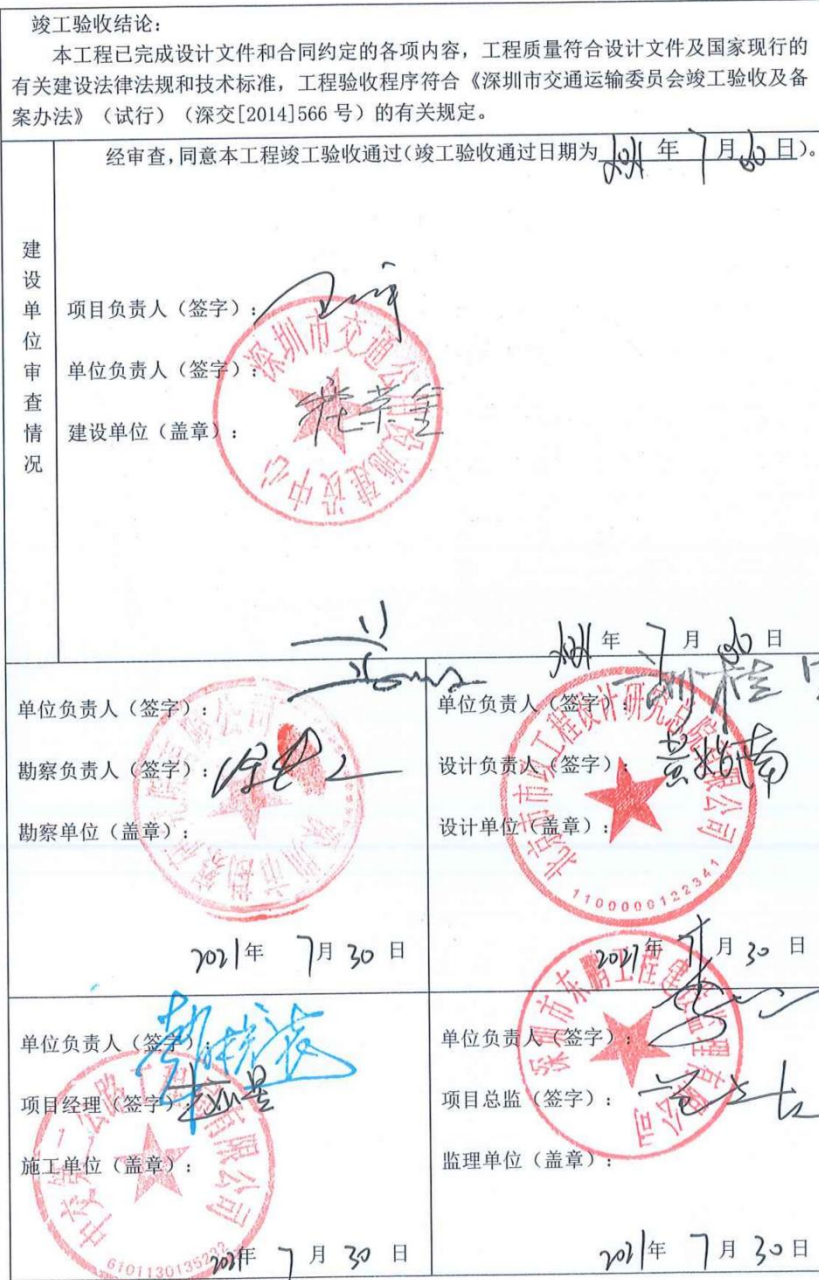 竣工验收结论：
本工程已完成设计文件和合同约定的各项内容，工程质量符合设计文件及国家现行的
有关建设法律法规和技术标准，工程验收程序符合《深圳市交通运输委员会竣工验收及备
案办法》（试行）（深交[2014]566号）的有关规定。
经审查，同意本工程竣工验收通过（竣工验收通过日期为2021年7月30日）。
建设单位审查情况
项目负责人（签字）：
单位负责人（签字）：
建设单位（盖章）：
深圳市交通公用设施建设中心
2021年7月30日
单位负责人（签字）：
勘察负责人（签字）：
勘察单位（盖章）：
2021年7月30日
单位负责人（签字）：
设计负责人（签字）：
设计单位（盖章）：
北京市市政工程设计研究总院有限公司
1100000122341
2021年7月30日
单位负责人（签字）：
项目经理（签字）：
施工单位（盖章）：
中交第二公路工程局有限公司
6101130135232
2021年7月30日
单位负责人（签字）：
项目总监（签字）：
监理单位（盖章）：
深圳市东鹏工程建设监理有限公司
2021年7月30日